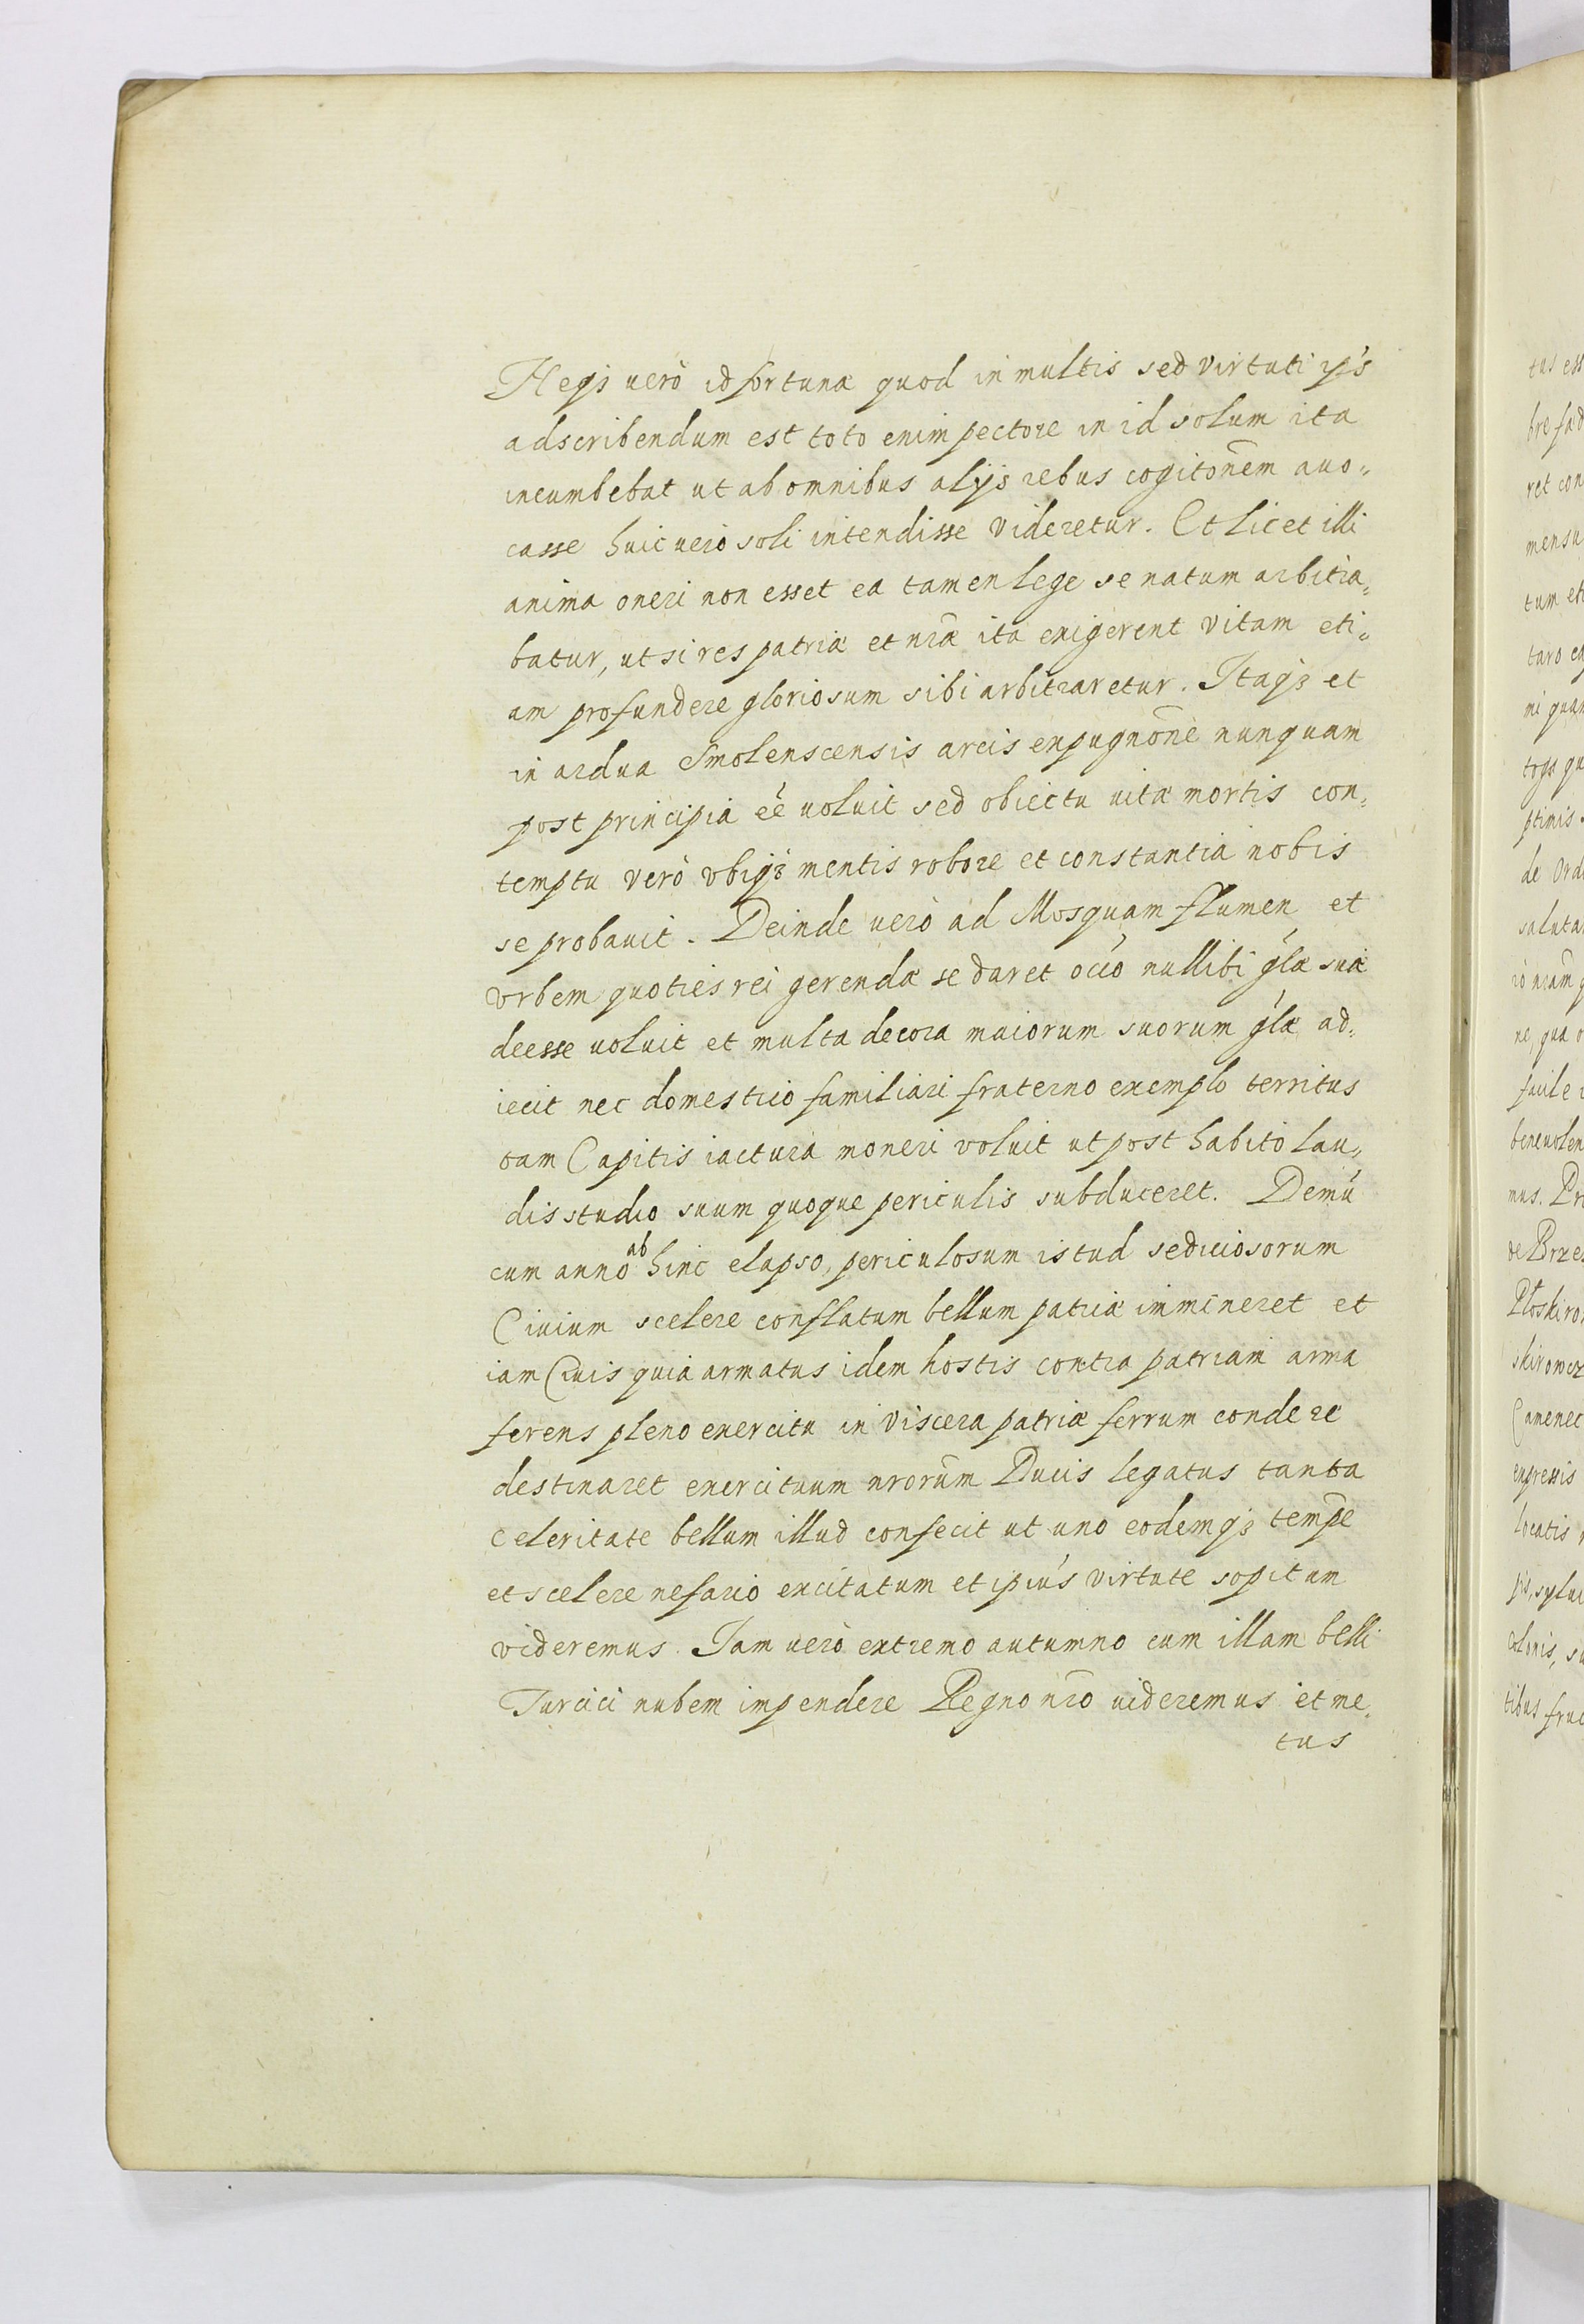 Neqȝ uerò id fortunæ quod in multis sed virtuti ip̃s
adscribendum est toto enim pectore in id solum ita
incumbebat ut ab omnibus alijs rebus cogitõnem auo„
casse huic uerò soli intendisse videretur. Et licet illi
anima oneri non esset ea tamen lege se natum arbitra„
batur, ut si res patriæ et nrã ita exigerent vitam eti„
am profundere gloriosum sibi arbitraretur. Itaqȝ et
in ardua Smolenscensis arcis expugnõne nunquam
post principia eé uoluit sed obiectu uitæ mortis con„
temptu verò vbiqȝ mentis robore et constantia nobis
se probauit. Deinde uerò ad Mosquam flumen et
vrbem quoties rei gerendæ se daret occĩo nullibi glæ suæ
deesse uoluit et multa decora maiorum suorum glæ ad„
iecit nec domestico familiari fraterno exemplo territus
tam Capitis iactura moneri voluit ut post habito lau„
dis studio suum quoque periculis subduceret. Demũ
cum anno ab hinc elapso, periculosum istud sediciosorum
Ciuium scelere conflatum bellum patriæ immineret et
iam Ciuis quia armatus idem hostis contra patriam arma
ferens pleno exercitu in viscera patriæ ferrum condere
destinaret exercituum nrorũm Ducis legatus tanta
celeritate bellum illud confecit ut uno eodemqȝ temp̃e
et scelere nefario excitatum et ipiús virtute sopitum
videremus. Iam uerò extremo autumno cum illam belli
Turcici nubem impendere Regno nrõ uideremus et me„
tus
tus ess
ret con
mensu
tum eti
mi quam
ptimis
de Ord
saluta
facile
beneuolen
mus. Pr
de Brze
Ploskiro
skirowcz
Camenec
expressis
locatis
tibus fruc